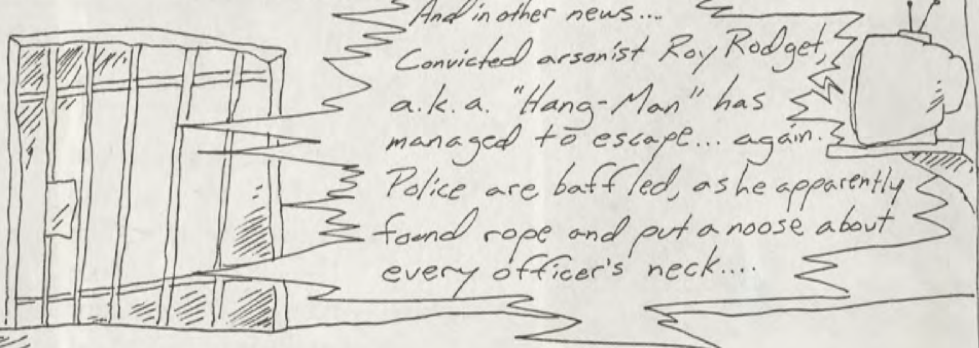 And in other news...
Convicted arsonist Roy Rodget,
a.k.a. "Hang-Man" has
managed to escape... again.
Police are baffled, as he apparently
found rope and put a noose about
every officer's neck....